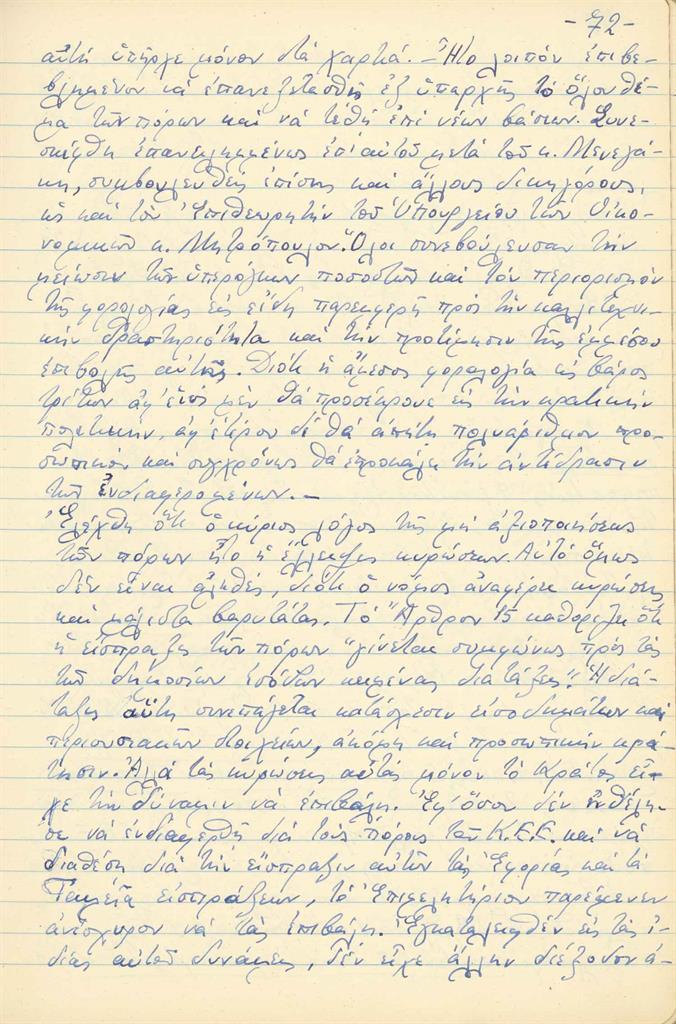 -72-
αὐτὴ ὑπῆρχε μόνον στὰ χαρτιά. – Ἦτο λοιπόν ἐπιβε-
βλημένον νά ἐπανεξετασθῇ ἐξ ὑπαρχῆς τό ὅλον θέ-
μα τῶν πόρων καί νά τεθῇ ἐπί νέων βάσεων. Συνε-
σκέφθη ἐπανειλημμένως ἐπ' αὐτοῦ μετά τοῦ κ. Μενεγά-
κη, συμβουλευθείς ἐπίσης καί ἄλλους δικηγόρους,
ὡς καί τόν Ἐπιθεωρητήν τοῦ Ὑπουργείου τῶν Οἰκο-
νομικῶν κ. Μητρόπουλον. Ὅλοι συνεβούλευσαν τήν
μείωσιν τῶν ὑπερόγκων ποσοστῶν καί τόν περιορισμόν
τῆς φορολογίας εἰς εἴδη παρεμφερῆ πρός τήν καλλιτεχνι-
κήν δραστηριότητα καί τήν προτίμησιν τῆς ἐμμέσου
ἐπιβολῆς αὐτῆς. Διότι ἡ ἄμεσος φορολογία εἰς βάρος
τρίτων ἀφ' ἑνός μέν θά προσέκρουε εἰς τήν κρατικήν
πολιτικήν, ἀφ' ἑτέρου δέ θά ἀπῄτει πολυάριθμον προ-
σωπικόν καί συγχρόνως θά ἐπροκάλει τήν ἀντίδρασιν
τῶν ἐνδιαφερομένων. –
Ἐλέχθη ὅτι ὁ κύριος λόγος τῆς μή ἀξιοποιήσεως
τῶν πόρων ἦτο ἡ ἔλλειψις κυρώσεων. Αὐτό ὅμως
δέν εἶναι ἀληθές, διότι ὁ νόμος ἀναφέρει κυρώσεις
καί μάλιστα βαρυτάτας. Τό Ἄρθρον 15 καθορίζει ὅτι
ἡ εἴσπραξις τῶν πόρων "γίνεται συμφώνως πρός τάς
τῶν δημοσίων ἐσόδων κειμένας διατάξεις". Ἡ διά-
ταξις αὕτη συνεπάγεται κατάσχεσιν εἰσοδημάτων καί
περιουσιακῶν στοιχείων, ἀκόμη καί προσωπικήν κρά-
τησιν. Ἀλλά τάς κυρώσεις αὐτάς μόνον τό Κράτος εἶ-
χε τήν δύναμιν νά ἐπιβάλῃ. Ἐφ' ὅσον δέν ἠθέλη-
σε νά ἐνδιαφερθῇ διά τούς πόρους τοῦ Κ.Ε.Ε. καί νά
διαθέσῃ διά τήν εἴσπραξιν αὐτῶν τάς Ἐφορίας καί τά
Ταμεῖα εἰσπράξεων, τό Ἐπιμελητήριον παρέμενεν
ἀνίσχυρον νά τάς ἐπιβάλῃ. Ἐγκαταλειφθέν εἰς τάς ἰ-
δίας αὐτοῦ δυνάμεις, δέν εἶχε ἄλλην διέξοδον ἀ-